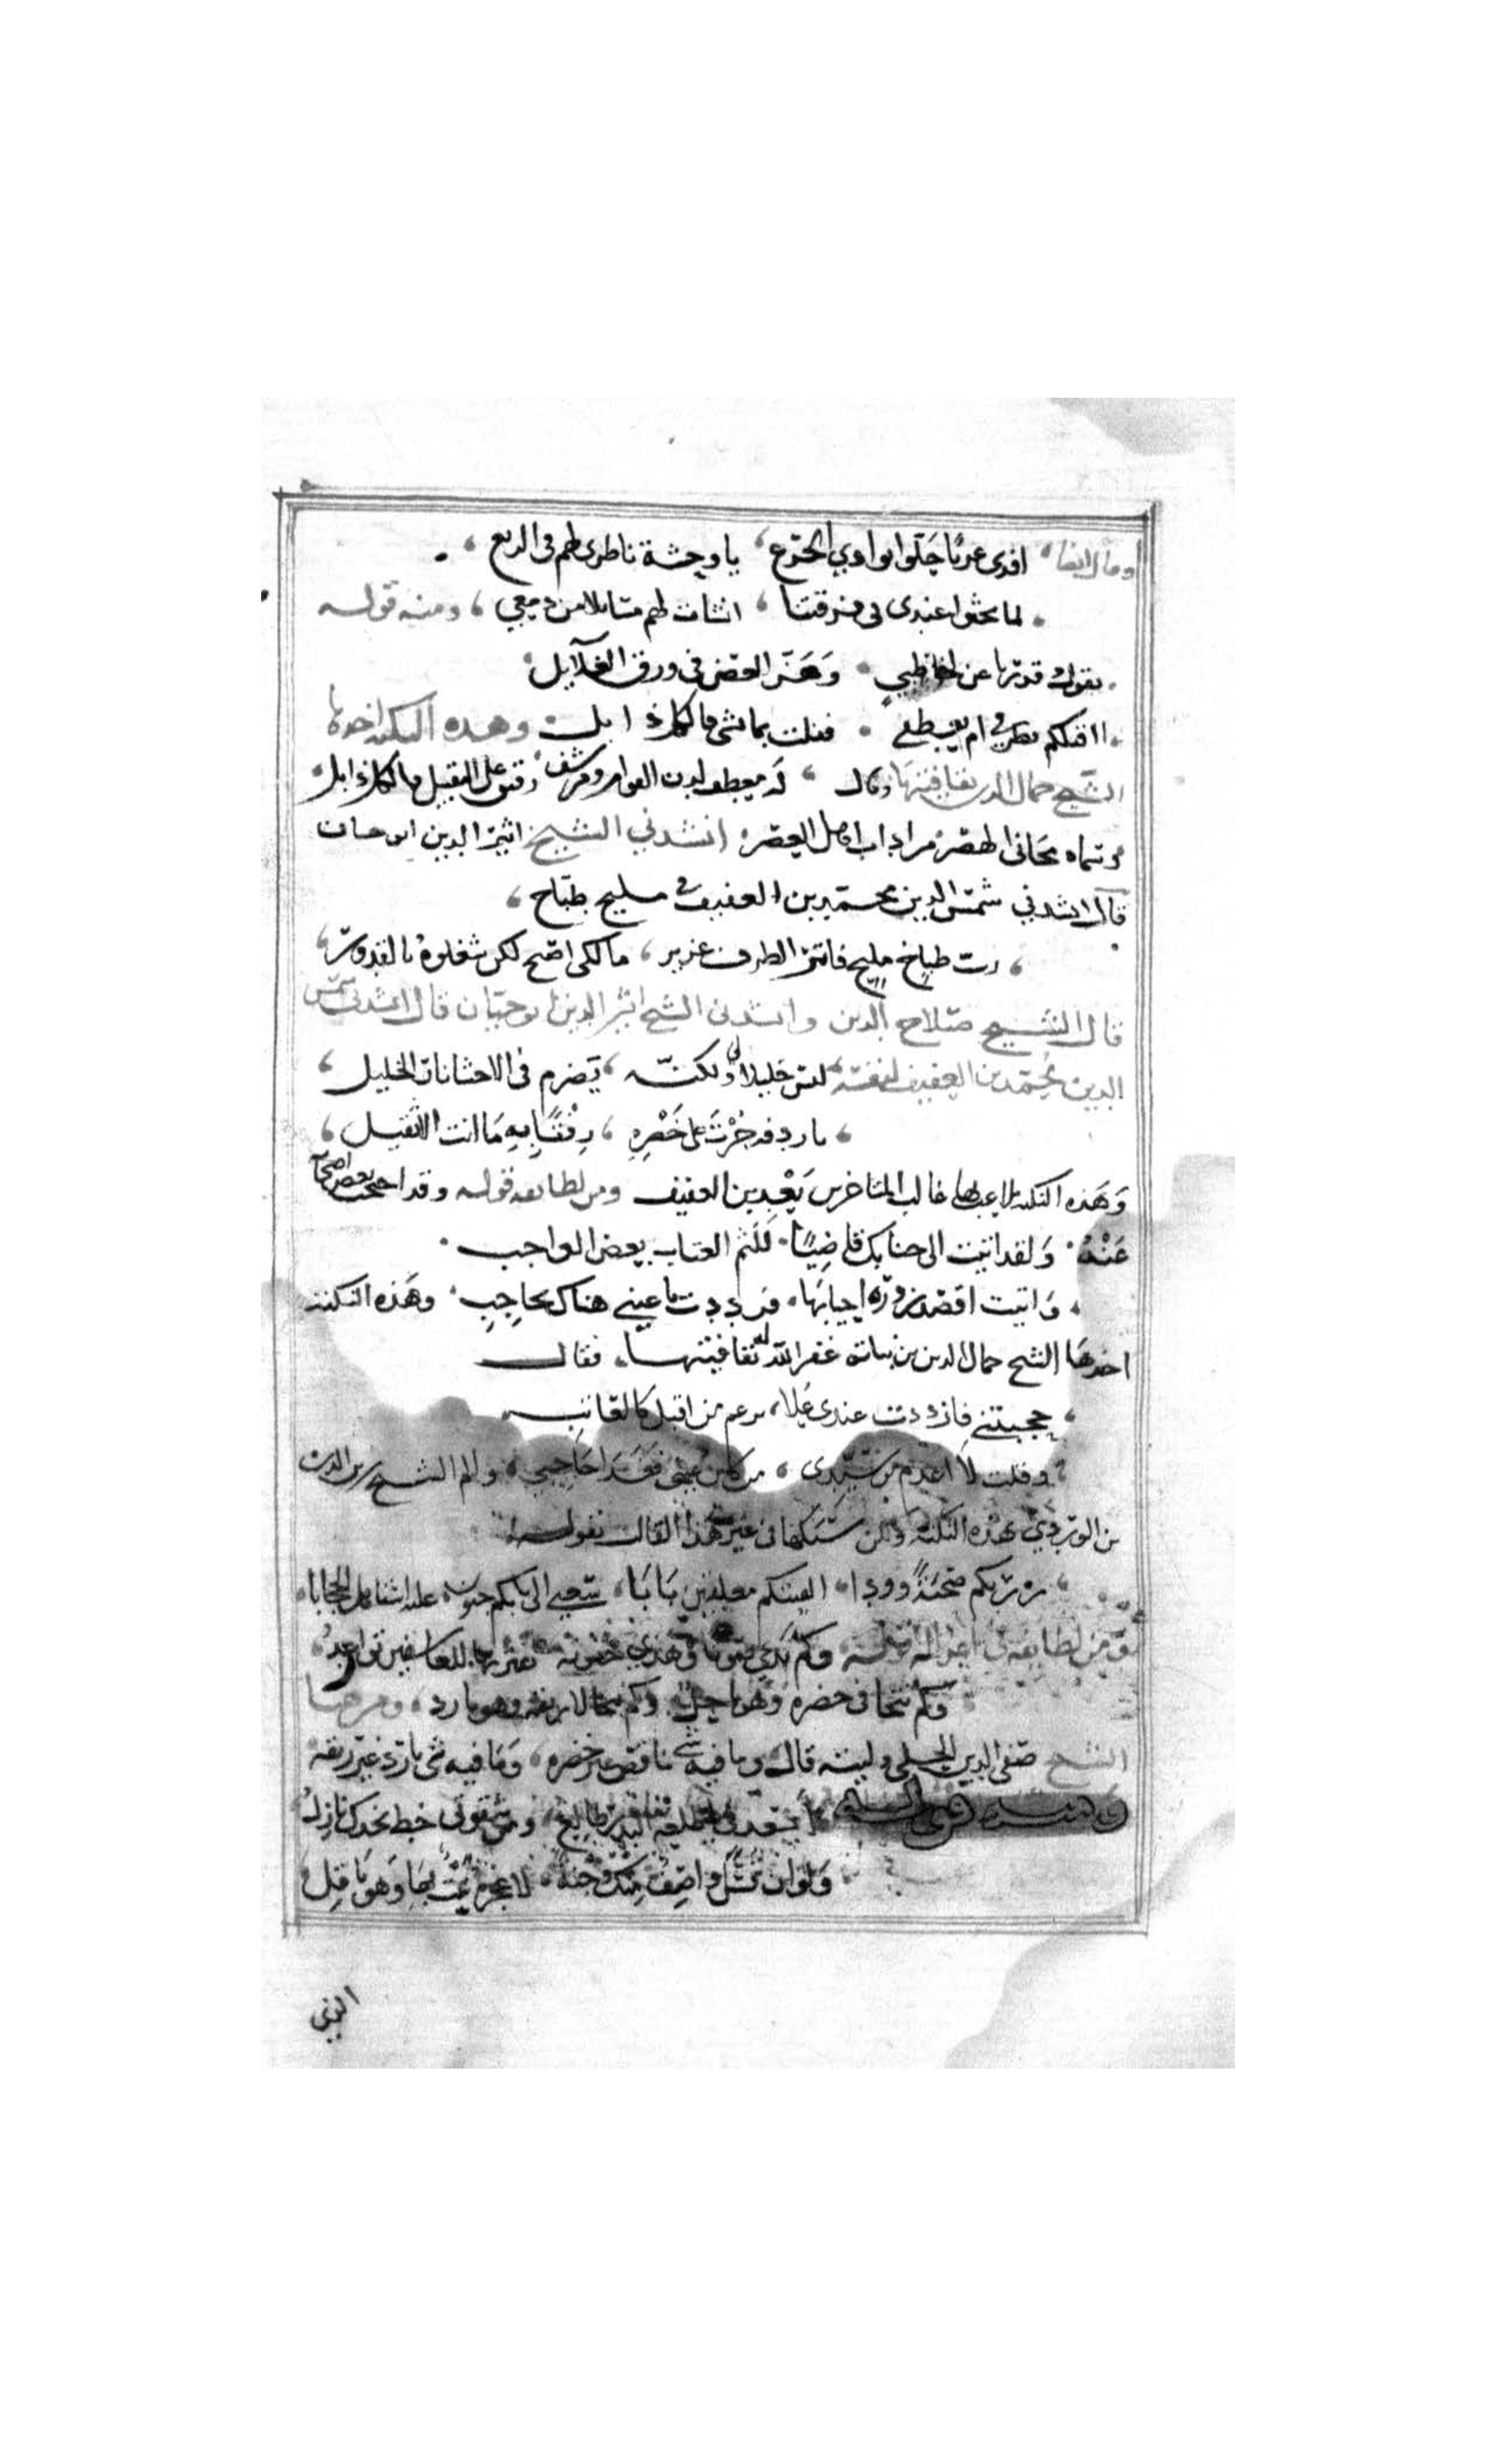 وقال ايضا افدى عربا حلوا بوادي الجزع يا وحشة ناظرى لهم فى الربع
لما بحثوا عندى فى فرقتنا انشات لهم مسايلا من دمعي ومنه قوله
يقول وقد رنا عن لحظ ظبي وهز الغصن فى ورق الغلايل
اافتلكم نظرى ام بعطفى فقلت بما تشى فالكل ذابل وهذه النكته اخذها
الشيخ جمال الدين بقافيتها وقال له معطف لدن القوام ومرشف على التقبيل فالكل ذابل
مجانى الهصر من اداب اهل العصر انشدني الشيخ اثير الدين ابو حيان
قال انشدني شمس الدين محمد بن العفيف فى مليح طباخ
رب طباخ مليح فاتر الطرف غرير مالكى اصبح لكن شغلوه بالقدور
قال الشيخ صلاح الدين وانشدنى الشيخ اثير الدين ابو حيان قال انشدنى شمس
الدين محمد بن العفيف لنفسه ليس خليلا لى ولكنه يضرم فى الاحشا نار الخليل
يا ردفه جرت على خصره رفقا به ما انت الا ثقيل
وهذه النكته تلاعب بها غالب المتاخرين بعد بن العفيف ومن لطايفه قوله وقد احتجب بعض اصحابه
عنه ولقد اتيت الى جنابك قاضيا للثم العتاب بعض الواجب
واتيت اقصد زورة احيا بها فرددت يا عيني هناك بحاجب وهذه النكتة
اخذها الشيخ جمال الدين بن نباته غفر الله له بقافيتها فقال
حجبتني فازددت عندى علا برغم من اقبل كالعاتب
وقلت لا اعدم من سيدى من كان عيني فغدا حاجبي والم الشيخ زين الدين
بن الوردي بهذه النكته ولكن سبكها فى غير هذا القالب بقوله
زرتكم محبة وودا الفيتكم مغلقين بابا سعيي الى بابكم جنون عليه استاهل الحجابا
ومن لطايفه فى اغزاله قوله وكم يدعى صونا وهذى جفونه بفترتها للعاشقين تواعد
وكم يتجافى خصره وهو ناحل وكم يتحالى ريقه وهو بارد ومرحبا
الشيخ صفى الدين الحلى وليته قال وما فيه شى ناقص غير خصره وما فيه شى بارد غير ريقه
ومنه قوله ايسعدنى يا طلعة البدر طالع ومن شقوتى خط بخدك نازل
ولو ان قسا واصف منك وجنة لاعجزه نبت بها وهو باقل
الذى